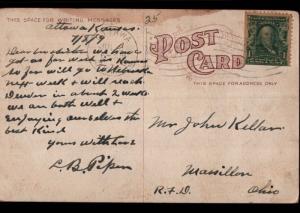 THIS SPACE FOR WRITING MESSAGES
25
Ottawa Kansas.
7/8/09
Dear we have
got as far west as Kansas
so far will go to Nebraska
next week & will reach
Denver in about 2 weeks
we are both well &
enjoying ourselves the
best kind
Yours with love
L.B. Piper
POST CARD
THIS SPACE FOR ADDRESS ONLY
Mr John Kellar.
Massillon
R.F.D. Ohio